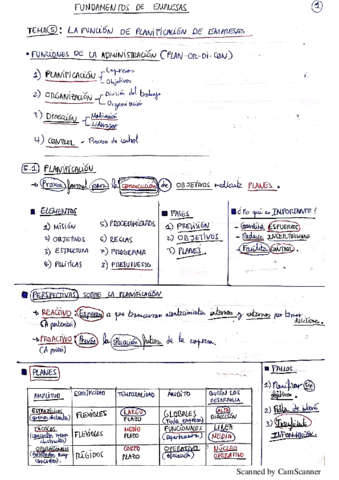 FUNDAMENTOS DE EMPRESAS
1
TEMA 5: LA FUNCIÓN DE PLANIFICACIÓN DE EMPRESAS
• FUNCIONES DE LA ADMINISTRACIÓN (PLAN-OR-DI-CON)
1) PLANIFICACIÓN
Objetivos
2) ORGANIZACIÓN
División del trabajo
Organización
3) DIRECCIÓN
Motivación
Liderazgo
4) CONTROL - Proceso de control
5.1) PLANIFICACIÓN
Proceso formal para la consecución de OBJETIVOS mediante PLANES.
ELEMENTOS
1) MISIÓN
2) OBJETIVOS
3) ESTRATEGIA
4) POLÍTICAS
5) PROCEDIMIENTOS
6) REGLAS
7) PROGRAMA
8) PRESUPUESTO
FASES
1) PREVISIÓN
2) OBJETIVOS
3) PLANES
¿Por qué es IMPORTANTE?
- ESFUERZOS
- Reduce INCERTIDUMBRE
- Facilita CONTROL
PERSPECTIVAS SOBRE LA PLANIFICACIÓN
REACTIVO: Espera a que transcurran acontecimientos internos y externos para tomar
(A posteriori) decisiones.
PROACTIVO: Prevé la situación futura de la empresa.
(A priori)
PLANES
AMPLITUD ESPECIFICIDAD TEMPORALIDAD ÁMBITO QUIÉN LOS DESARROLLA
ESTRATÉGICOS FLEXIBLES LARGO PLAZO GLOBALES (Toda empresa) ALTA DIRECCIÓN
TÁCTICOS FLEXIBLES MEDIO PLAZO MEDIOS LÍNEA MEDIA
OPERATIVOS RÍGIDOS CORTO PLAZO OPERATIVO NÚCLEO OPERATIVO
FALLOS
1) Planificar sin objetivos
2) Falta de
3) INFORMACIÓN
Scanned by CamScanner